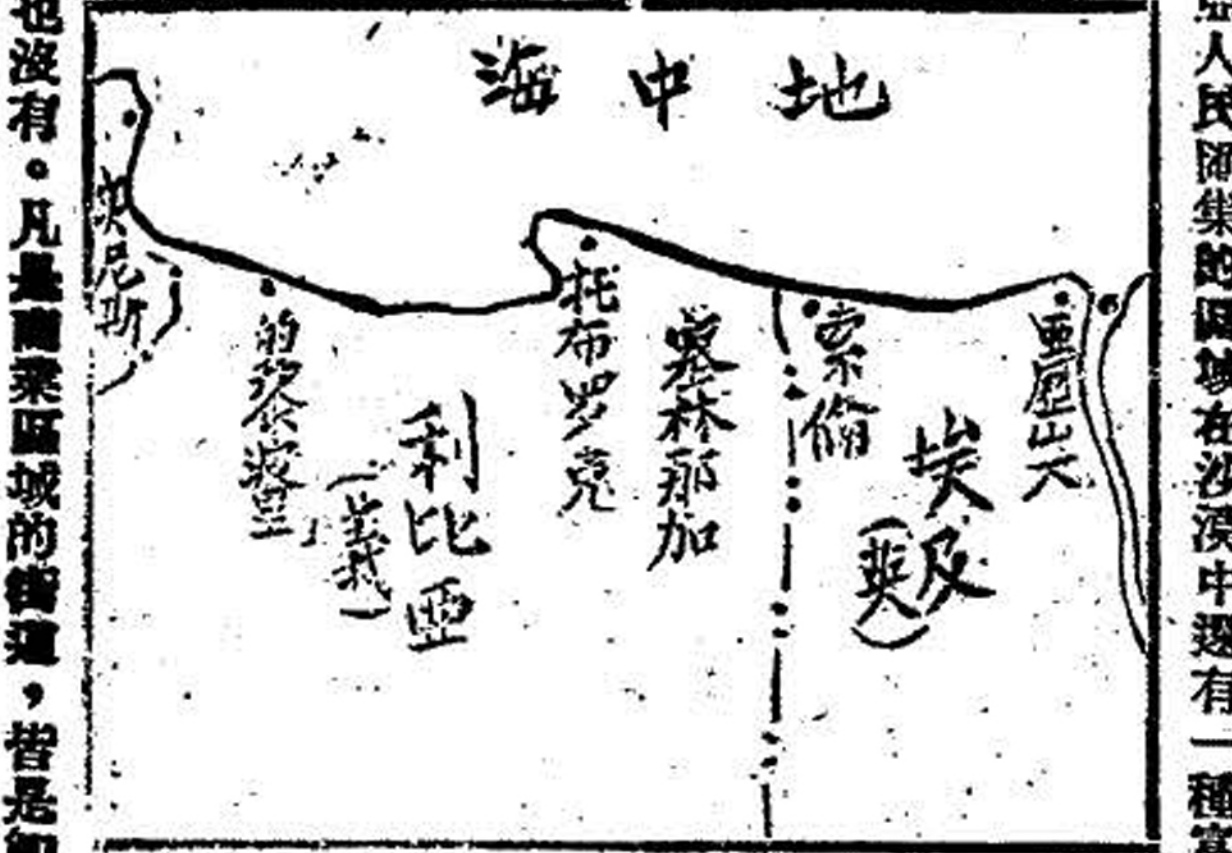 人民匯集的區域在沙漠中還有一種
地中海
亞歷山大
埃及
(英)
索倫
塞林那加
托布罗克
利比亞
(義)
的黎波里
突尼斯
也沒有。凡是商業區域的街道，皆是